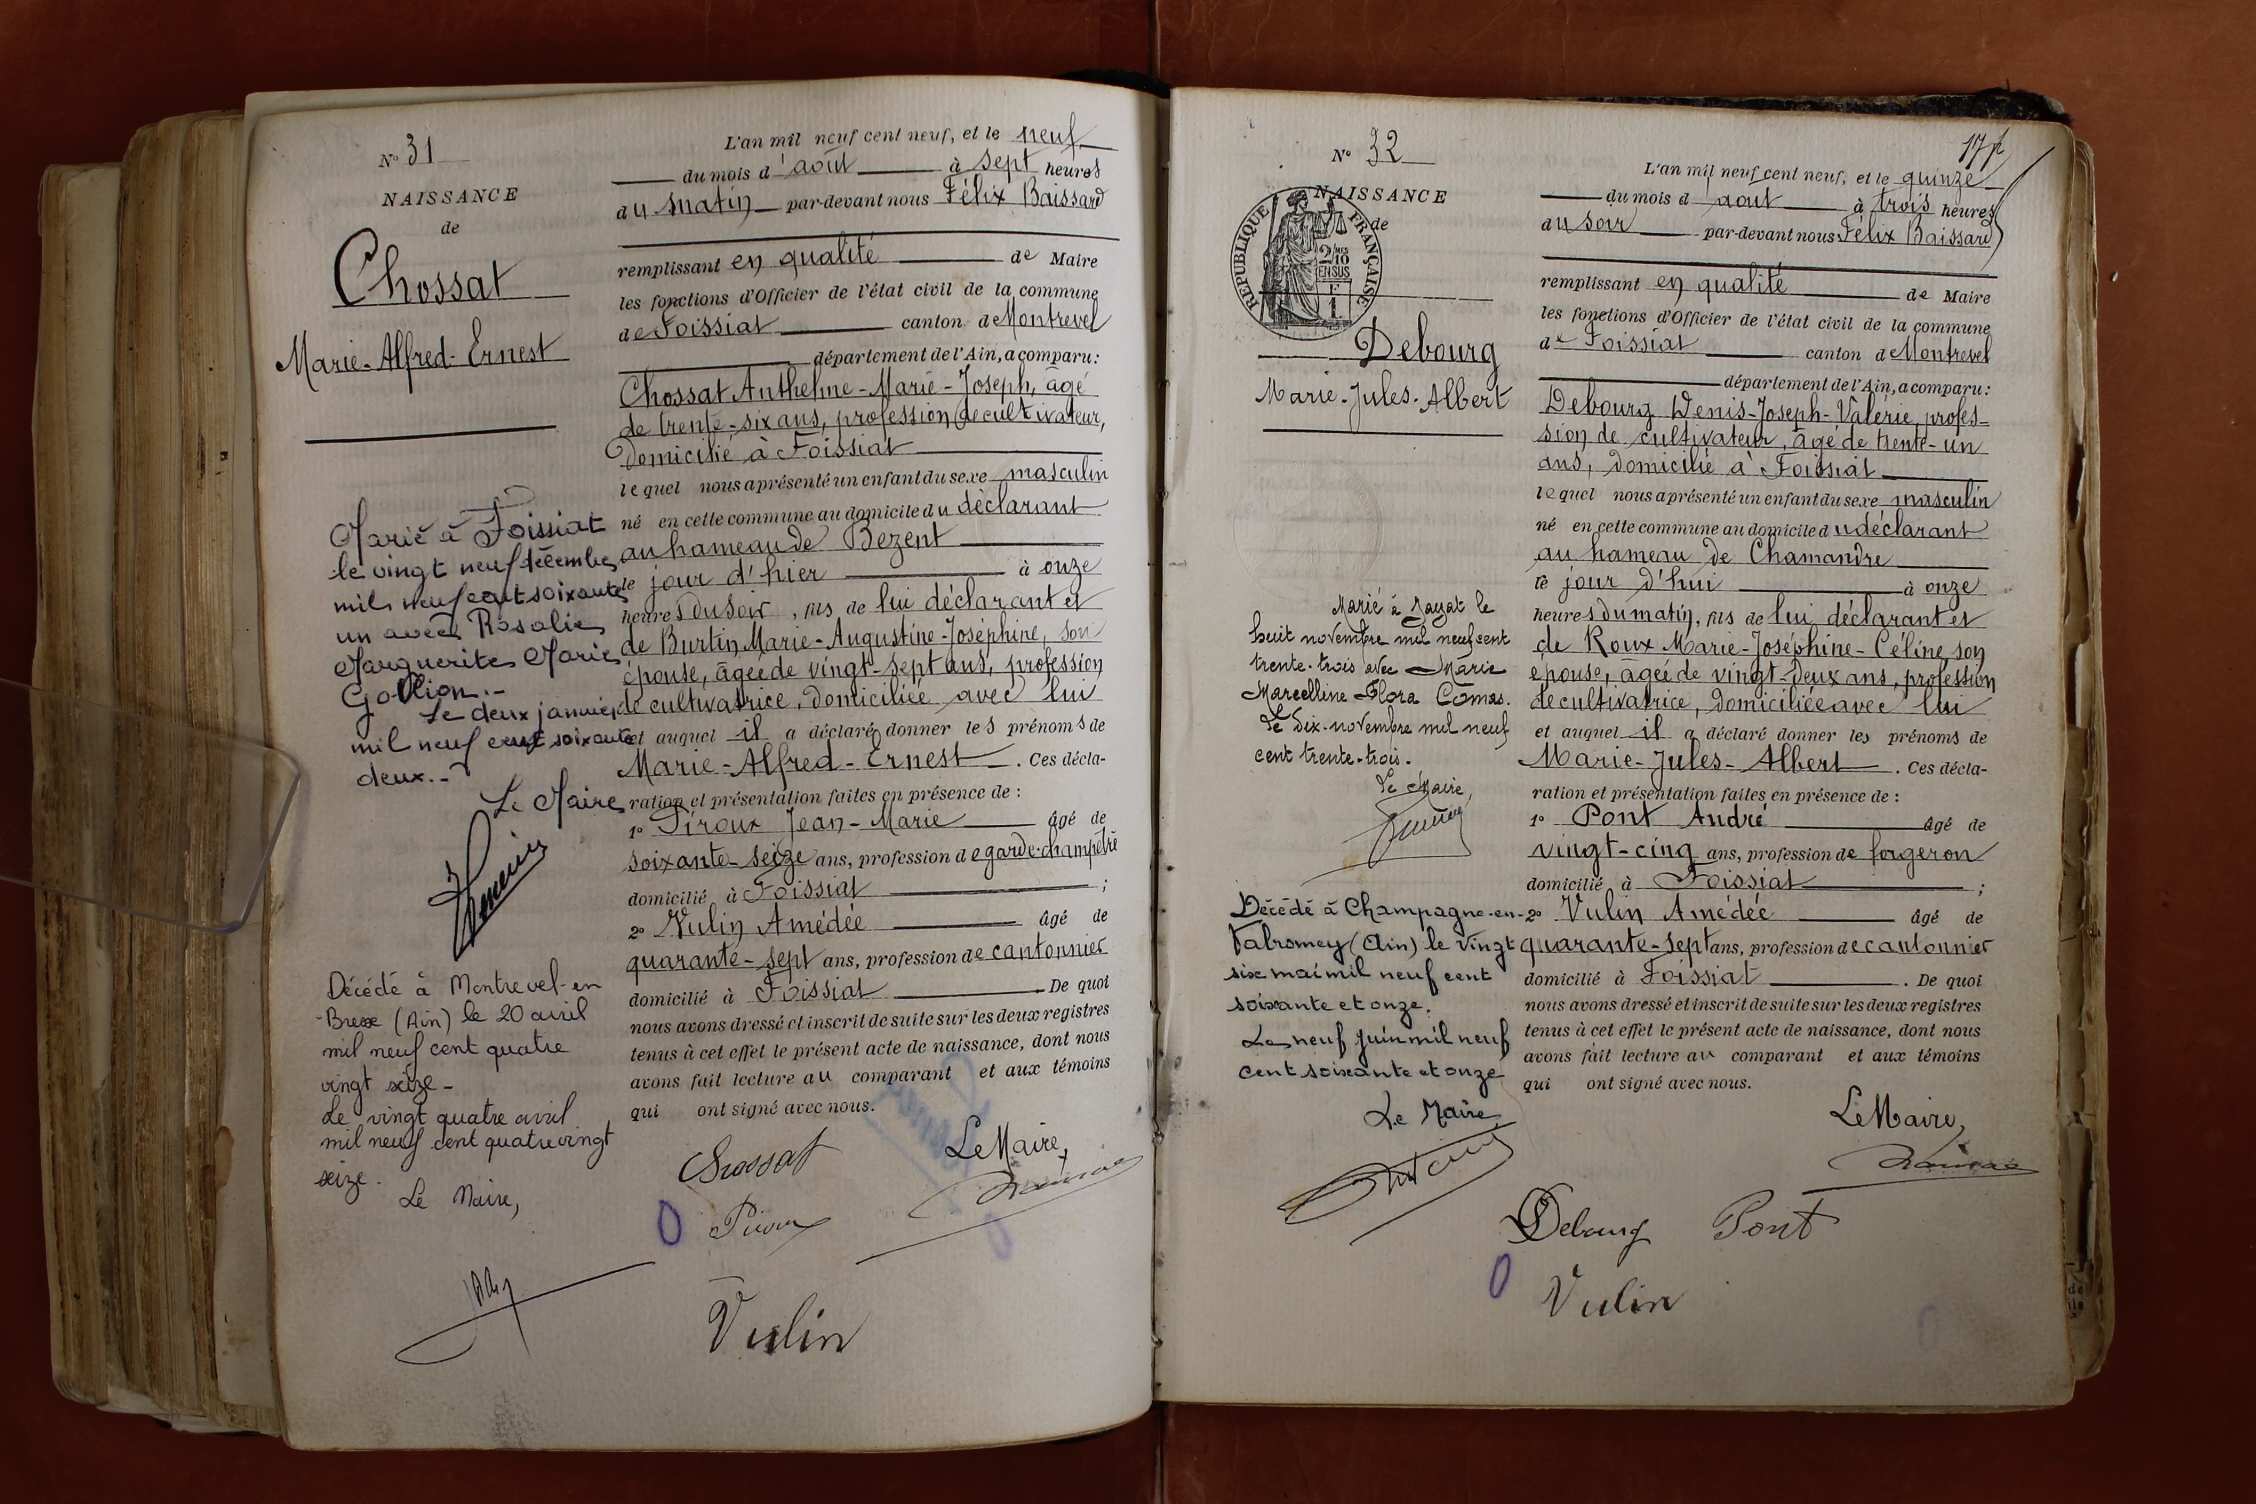 N° 31
NAISSANCE
de
Chossat
Marie-Alfred-Ernest
Marié à Foissiat
le vingt neuf décembre
mil neuf cent soixante
un avec Rosalie
Marguerite Marie
Gollion.-
Le deux janvier
mil neuf cent soixante
deux.-
Le Maire
Décédé à Montrevel-en
-Bresse (Ain) le 20 avril
mil neuf cent quatre
vingt seize-
Le vingt quatre avril
mil neuf cent quatre vingt
seize.
Le Maire,
L'an mil neuf cent neuf, et le neuf
du mois d'août à sept heures
du matin par-devant nous Félix Baissard
remplissant en qualité de Maire
les fonctions d'Officier de l'état civil de la commune
de Foissiat canton de Montrevel
département de l'Ain, a comparu:
Chossat Anthelme-Marie-Joseph, âgé
de trente-six ans, profession de cultivateur,
domicilié à Foissiat
lequel nous a présenté un enfant du sexe masculin
né en cette commune au domicile du déclarant
au hameau de Bezent
le jour d'hier à onze
heures du soir, fils de lui déclarant et
de Burtin Marie-Augustine-Joséphine, son
épouse, âgée de vingt-sept ans, profession
de cultivatrice, domiciliée avec lui
et auquel il a déclaré donner les prénoms de
Marie-Alfred-Ernest. Ces décla-
ration et présentation faites en présence de :
1° Piroux Jean-Marie âgé de
soixante-seize ans, profession de garde-champêtre
domicilié à Foissiat ;
2° Vulin Amédée âgé de
quarante-sept ans, profession de cantonnier
domicilié à Foissiat. De quoi
nous avons dressé et inscrit de suite sur les deux registres
tenus à cet effet le présent acte de naissance, dont nous
avons fait lecture au comparant et aux témoins
qui ont signé avec nous.
Chossat
Le Maire,
Piroux
Vulin
17
N° 32
NAISSANCE
de
RÉPUBLIQUE FRANÇAISE
2/10
EN SUS
Debourg
Marie-Jules-Albert
Marié à Jayat le
huit novembre mil neuf cent
trente-trois avec Marie
Marcelline Flora Comas.
Le dix-novembre mil neuf
cent trente-trois.
Le Maire,
Décédé à Champagne-en-
Valromey (Ain) le vingt
six mai mil neuf cent
soixante et onze.
Le neuf juin mil neuf
cent soixante et onze
Le Maire
L'an mil neuf cent neuf, et le quinze
du mois d'août à trois heures
du soir par-devant nous Félix Baissard
remplissant en qualité de Maire
les fonctions d'Officier de l'état civil de la commune
de Foissiat canton de Montrevel
département de l'Ain, a comparu:
Debourg Denis-Joseph-Valérie, profes-
sion de cultivateur, âgé de trente-un
ans, domicilié à Foissiat
lequel nous a présenté un enfant du sexe masculin
né en cette commune au domicile du déclarant
au hameau de Chamandre
le jour d'hui à onze
heures du matin, fils de lui déclarant et
de Roux Marie-Joséphine-Céline son
épouse, âgée de vingt-deux ans, profession
de cultivatrice, domiciliée avec lui
et auquel il a déclaré donner les prénoms de
Marie-Jules-Albert. Ces décla-
ration et présentation faites en présence de :
1° Pont André âgé de
vingt-cinq ans, profession de forgeron
domicilié à Foissiat ;
2° Vulin Amédée âgé de
quarante-sept ans, profession de cantonnier
domicilié à Foissiat. De quoi
nous avons dressé et inscrit de suite sur les deux registres
tenus à cet effet le présent acte de naissance, dont nous
avons fait lecture au comparant et aux témoins
qui ont signé avec nous.
Le Maire,
Debourg Pont
Vulin